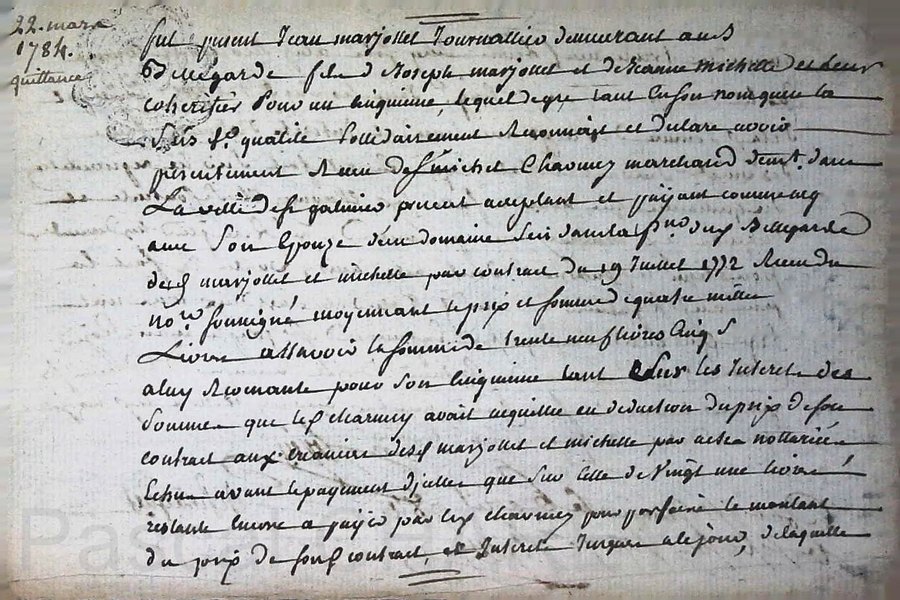 22. mars
1784.
quittance
fut present Jean marjollet Journallier demeurant au d
Bellegarde fils d Joseph marjollet et de Jeanne michelle et de leurs
coheritiers Pour un cinquieme, lequel de gre tant en son nom que en la
qualite sollidairement Reconnaist et declare avoir
presentement Receu de Sr michel Charmey marchand demt. dans
La ville de st galmier present acceptant et payant comme acq
avec Son Epouze d'un domaine sis dans la psse d Bellegarde
desd marjollet et michelle par contract du 19 Juillet 1772 Receu du
nore. soussigné moyennant le prix et somme d quatre mille
Livres assavoir la somme de trente neuf livres cinq s
a luy Revenante pour Son cinquieme tant sur les Interets des
Sommes que led charmey avait acquittée en deduction du prix de son
contract aux creancier desd marjollet et michelle par actes nottariés
Echus avant le payement d'icelles que sur celle de Vingt une livres
restante encore a payer par led charmey pour parfaire le montant
du prix de sond contract, et Interets Jusques a ce jour, de laquelle